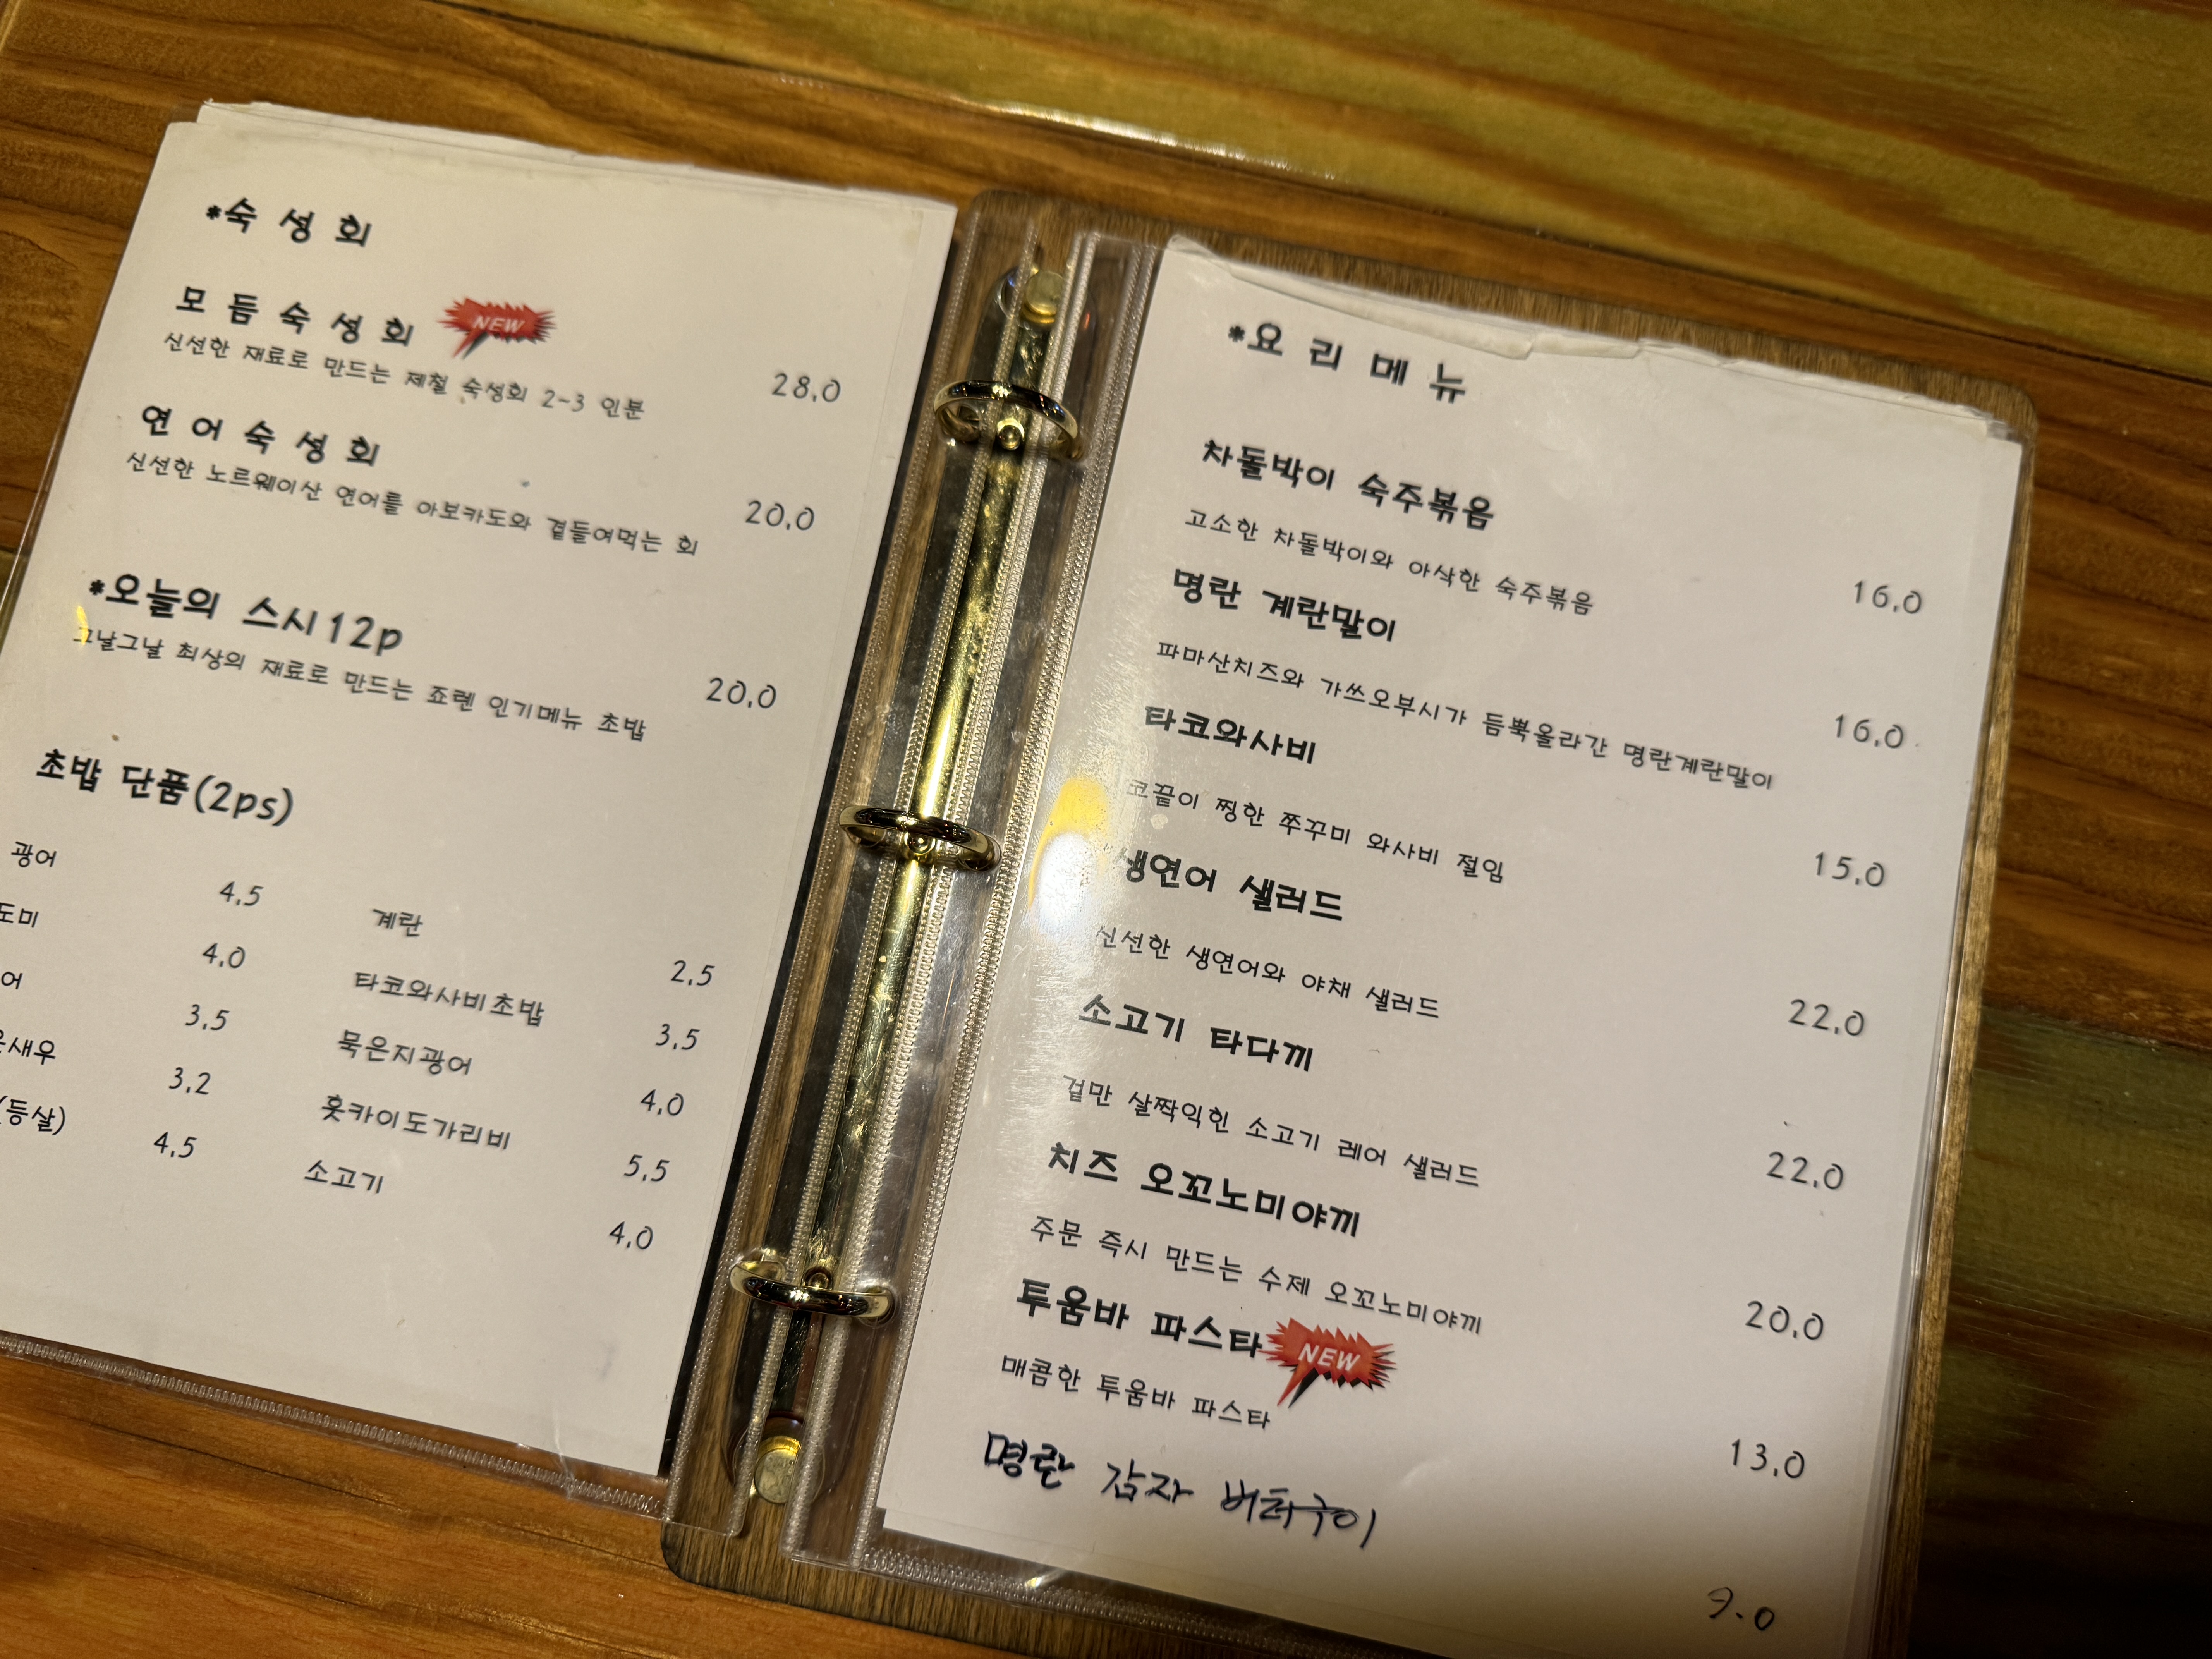 *숙성회
모듬숙성회 NEW
28.0
신선한 재료로 만드는 제철 숙성회 2-3 인분
연어숙성회
20.0
신선한 노르웨이산 연어를 아보카도와 곁들여먹는 회
*오늘의 스시12p
20.0
그날그날 최상의 재료로 만드는 죠렌 인기메뉴 초밥
초밥 단품(2ps)
광어 4.5 계란 2.5
도미 4.0 타코와사비초밥 3.5
어 3.5 묵은지광어 4.0
새우 3.2 홋카이도가리비 5.5
(등살) 4.5 소고기 4.0
*요리메뉴
차돌박이 숙주볶음
16.0
고소한 차돌박이와 아삭한 숙주볶음
명란 계란말이
16.0
파마산치즈와 가쓰오부시가 듬뿍올라간 명란계란말이
타코와사비
15.0
코끝이 찡한 쭈꾸미 와사비 절임
생연어 샐러드
22.0
신선한 생연어와 야채 샐러드
소고기 타다끼
22.0
겉만 살짝익힌 소고기 레어 샐러드
치즈 오꼬노미야끼
20.0
주문 즉시 만드는 수제 오꼬노미야끼
투움바 파스타 NEW
13.0
매콤한 투움바 파스타
명란 감자 버터구이